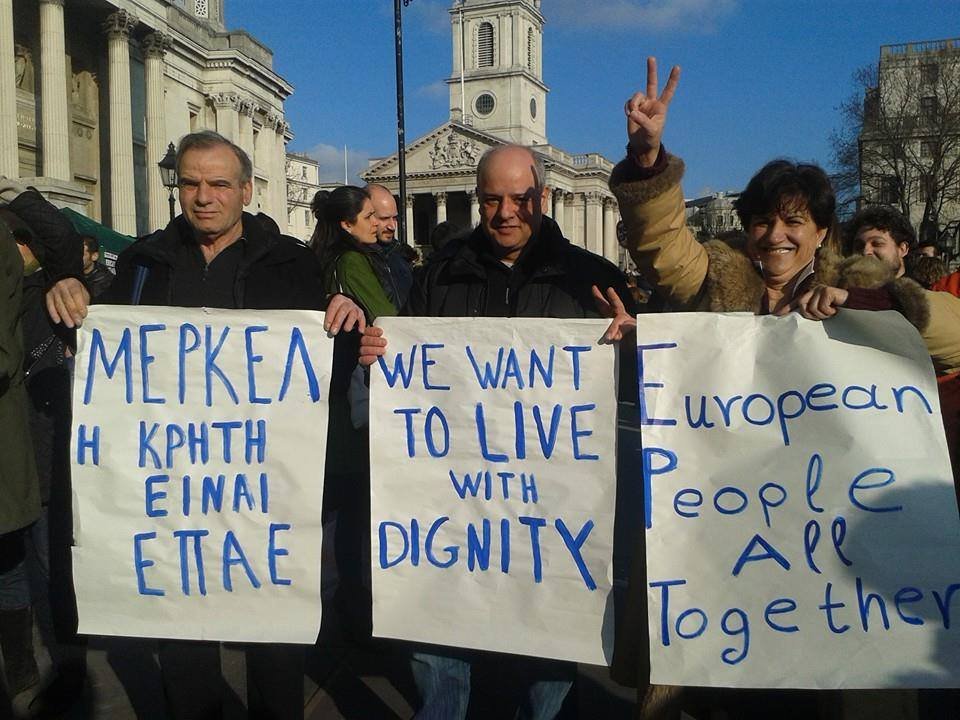 ΜΕΡΚΕΛ
Η ΚΡΗΤΗ
ΕΙΝΑΙ
ΕΠΑΕ
WE WANT
TO LIVE
WITH
DIGNITY
European
People
All
Together